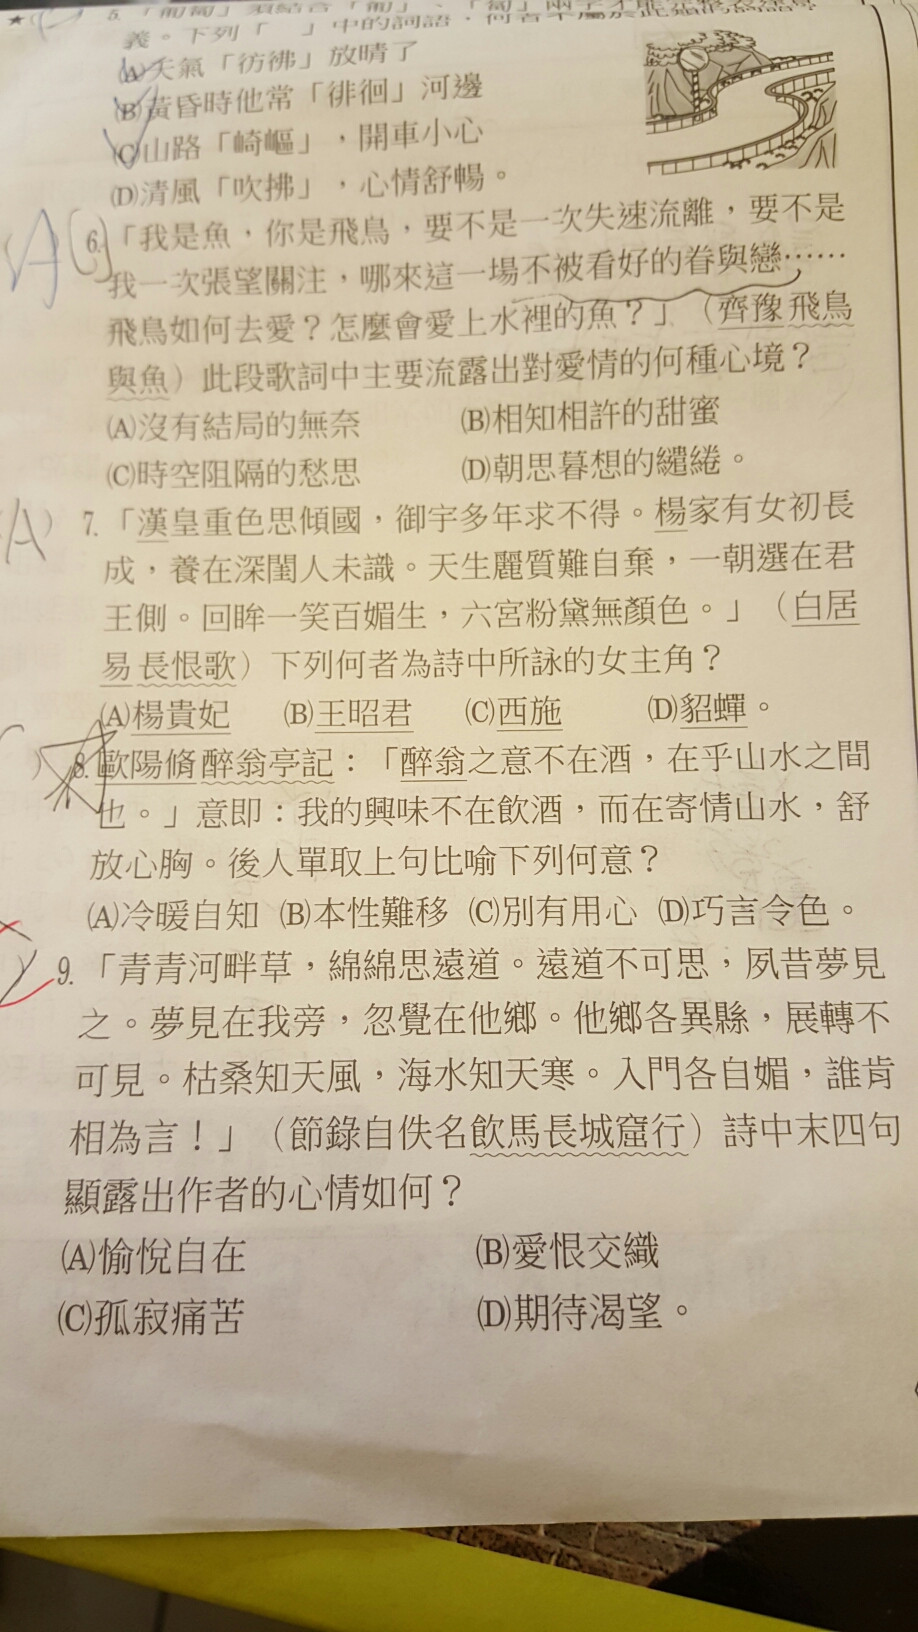 5.「葡萄」須結合「葡」、「萄」兩字才能
義。下列「　」中的詞語，何者不屬於此類
(A)天氣「彷彿」放晴了
(B)黃昏時他常「徘徊」河邊
(C)山路「崎嶇」，開車小心
(D)清風「吹拂」，心情舒暢。
A
6.「我是魚，你是飛鳥，要不是一次失速流離，要不是
我一次張望關注，哪來這一場不被看好的眷與戀……
飛鳥如何去愛？怎麼會愛上水裡的魚？」（齊豫 飛鳥
與魚）此段歌詞中主要流露出對愛情的何種心境？
(A)沒有結局的無奈 (B)相知相許的甜蜜
(C)時空阻隔的愁思 (D)朝思暮想的繾綣。
(A) 7.「漢皇重色思傾國，御宇多年求不得。楊家有女初長
成，養在深閨人未識。天生麗質難自棄，一朝選在君
王側。回眸一笑百媚生，六宮粉黛無顏色。」（白居
易 長恨歌）下列何者為詩中所詠的女主角？
(A)楊貴妃 (B)王昭君 (C)西施 (D)貂蟬。
8.歐陽脩 醉翁亭記：「醉翁之意不在酒，在乎山水之間
也。」意即：我的興味不在飲酒，而在寄情山水，舒
放心胸。後人單取上句比喻下列何意？
(A)冷暖自知 (B)本性難移 (C)別有用心 (D)巧言令色。
9.「青青河畔草，綿綿思遠道。遠道不可思，夙昔夢見
之。夢見在我旁，忽覺在他鄉。他鄉各異縣，展轉不
可見。枯桑知天風，海水知天寒。入門各自媚，誰肯
相為言！」（節錄自佚名飲馬長城窟行）詩中末四句
顯露出作者的心情如何？
(A)愉悅自在 (B)愛恨交織
(C)孤寂痛苦 (D)期待渴望。